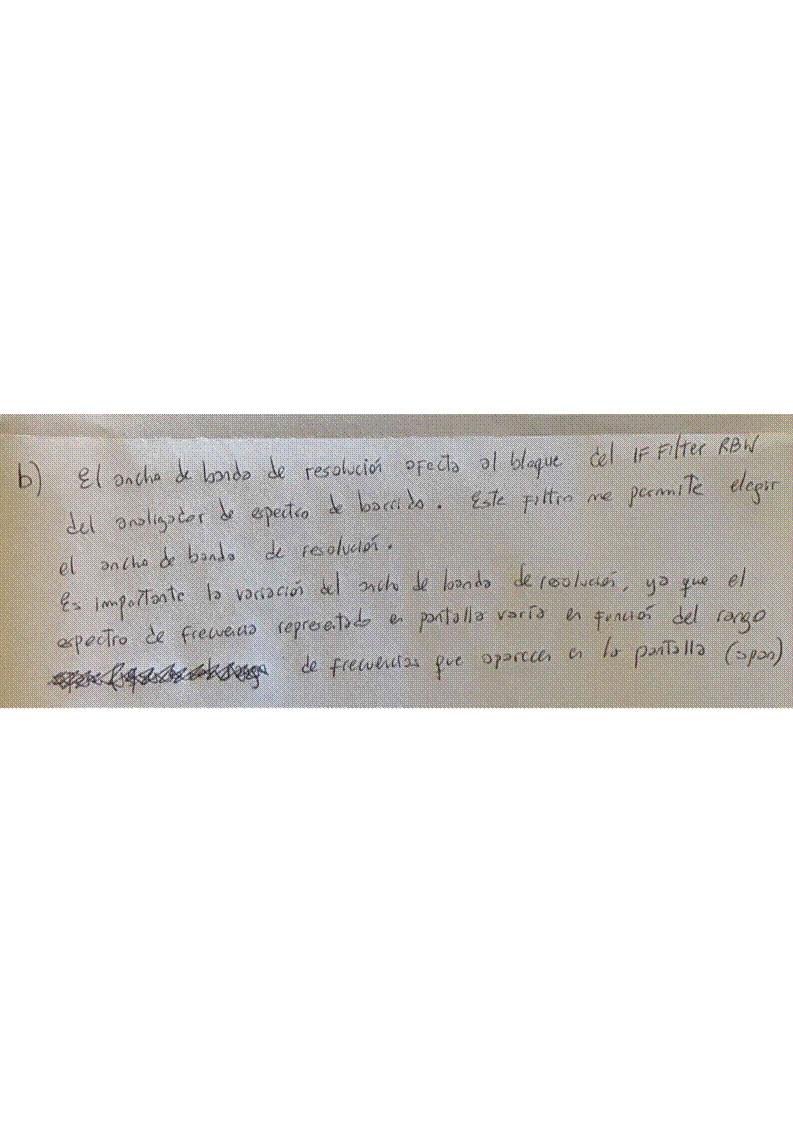 b) El ancho de banda de resolución afecta al bloque del IF Filter RBW
del analizador de espectro de barrido. Este filtro me permite elegir
el ancho de banda de resolución.
Es importante la variación del ancho de banda de resolución, ya que el
espectro de frecuencia representado en pantalla varía en función del rango
de frecuencias que aparecen en la pantalla (span)